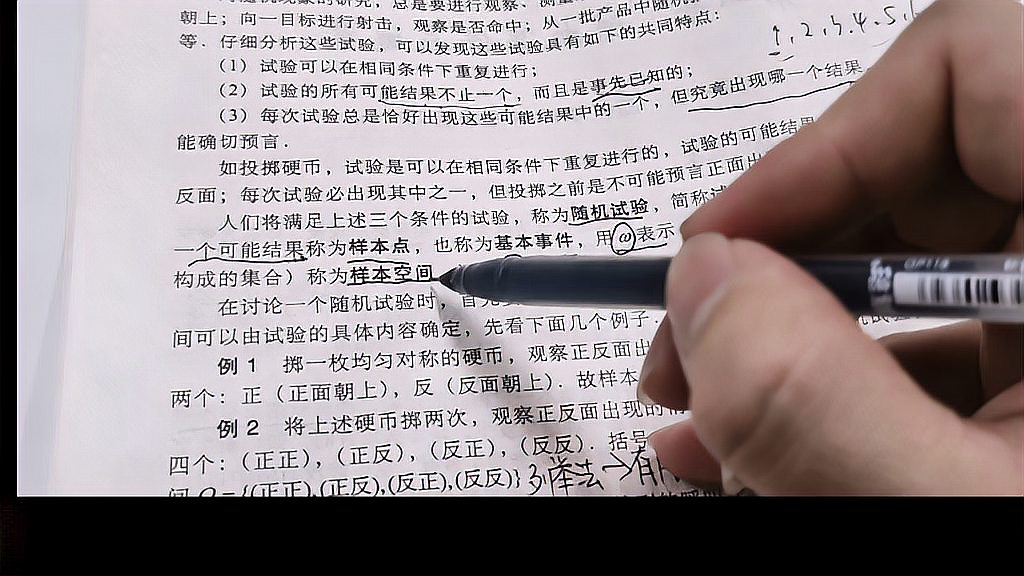 随机现象的研究，总是要进行观察、测量
朝上；向一目标进行射击，观察是否命中；从一批产品中随机
等．仔细分析这些试验，可以发现这些试验具有如下的共同特点：
1,2,3,4,5,
（1）试验可以在相同条件下重复进行；
（2）试验的所有可能结果不止一个，而且是事先已知的；
（3）每次试验总是恰好出现这些可能结果中的一个，但究竟出现哪一个结果
能确切预言．
如投掷硬币，试验是可以在相同条件下重复进行的，试验的可能结果
反面；每次试验必出现其中之一，但投掷之前是不可能预言正面出
人们将满足上述三个条件的试验，称为随机试验，简称试
一个可能结果称为样本点，也称为基本事件，用ω表示
构成的集合）称为样本空间
在讨论一个随机试验时，首先
间可以由试验的具体内容确定，先看下面几个例子．
例 1 掷一枚均匀对称的硬币，观察正反面出
两个：正（正面朝上），反（反面朝上）．故样本
例 2 将上述硬币掷两次，观察正反面出现的情
四个：（正正），（正反），（反正），（反反）．括号
间Ω={(正正),(正反),(反正),(反反)} 列举法→有